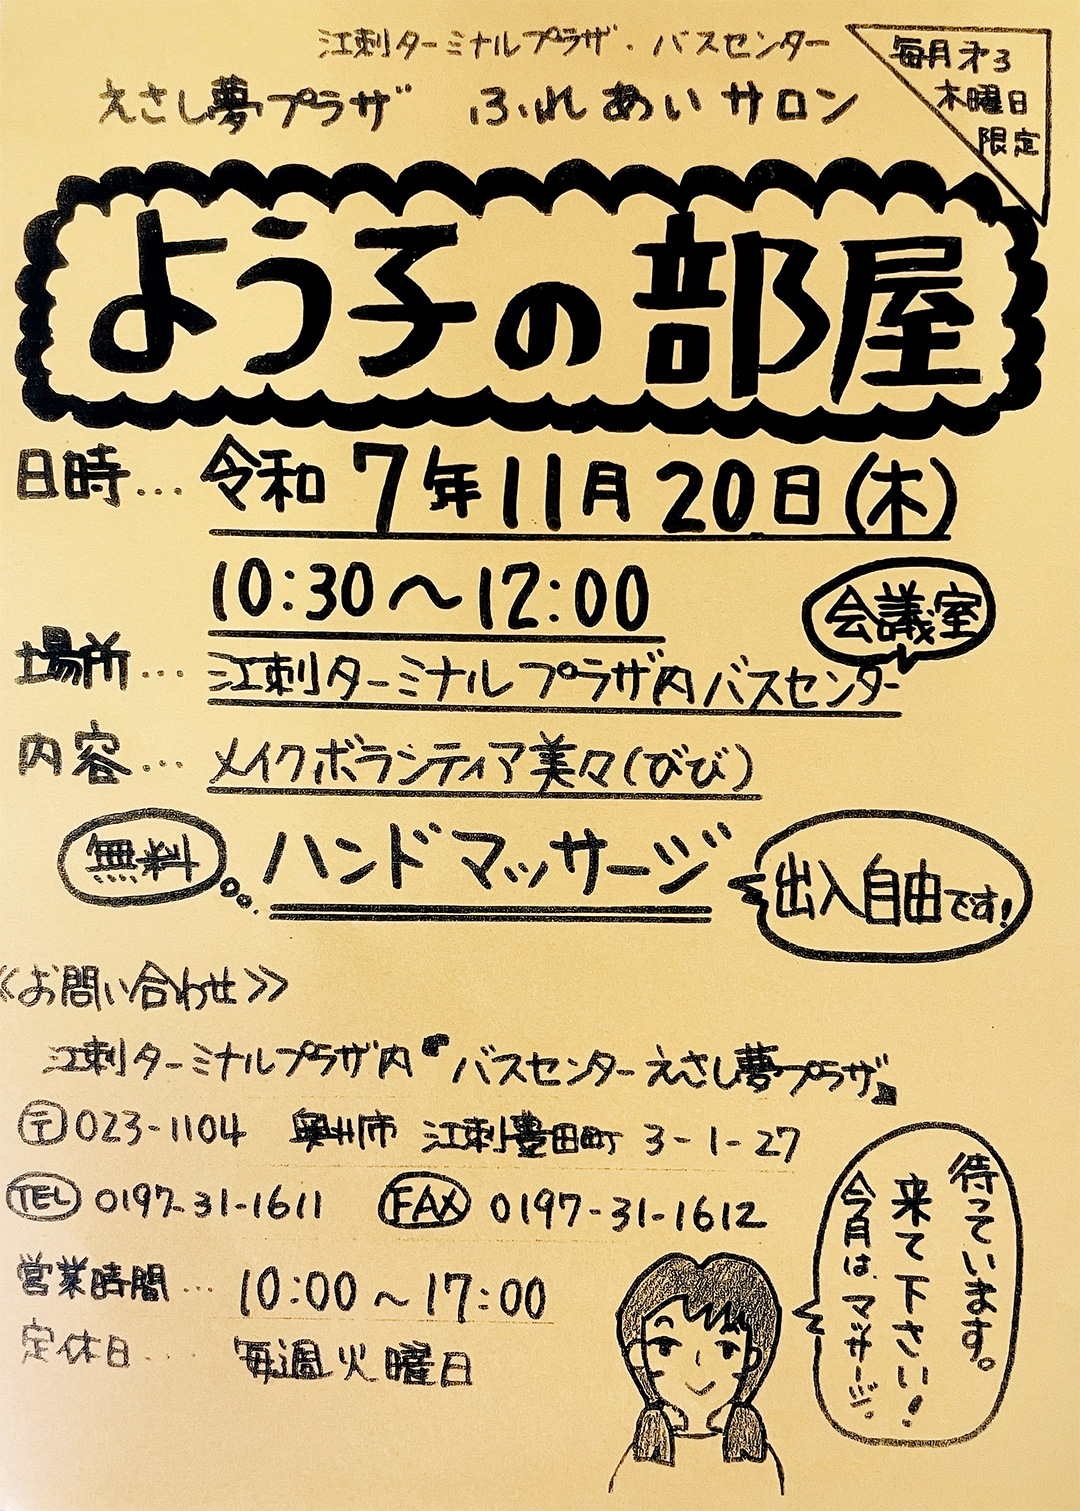 江刺ターミナルプラザ・バスセンター
えさし夢プラザ ふれあいサロン
毎月才3
木曜日
限定
ようこの部屋
日時… 令和7年11月20日(木)
10:30～12:00
会議室
場所… 江刺ターミナルプラザ内バスセンター
内容… メイクボランティア美々(びび)
無料
ハンドマッサージ
出入自由です!
《お問い合わせ》
江刺ターミナルプラザ内『バスセンターえさし夢プラザ』
〒023-1104 奥州市 江刺豊田町 3-1-27
TEL 0197-31-1611 FAX 0197-31-1612
営業時間… 10:00～17:00
定休日… 毎週火曜日
待っています。
来て下さい!
今月は、マッサージ。